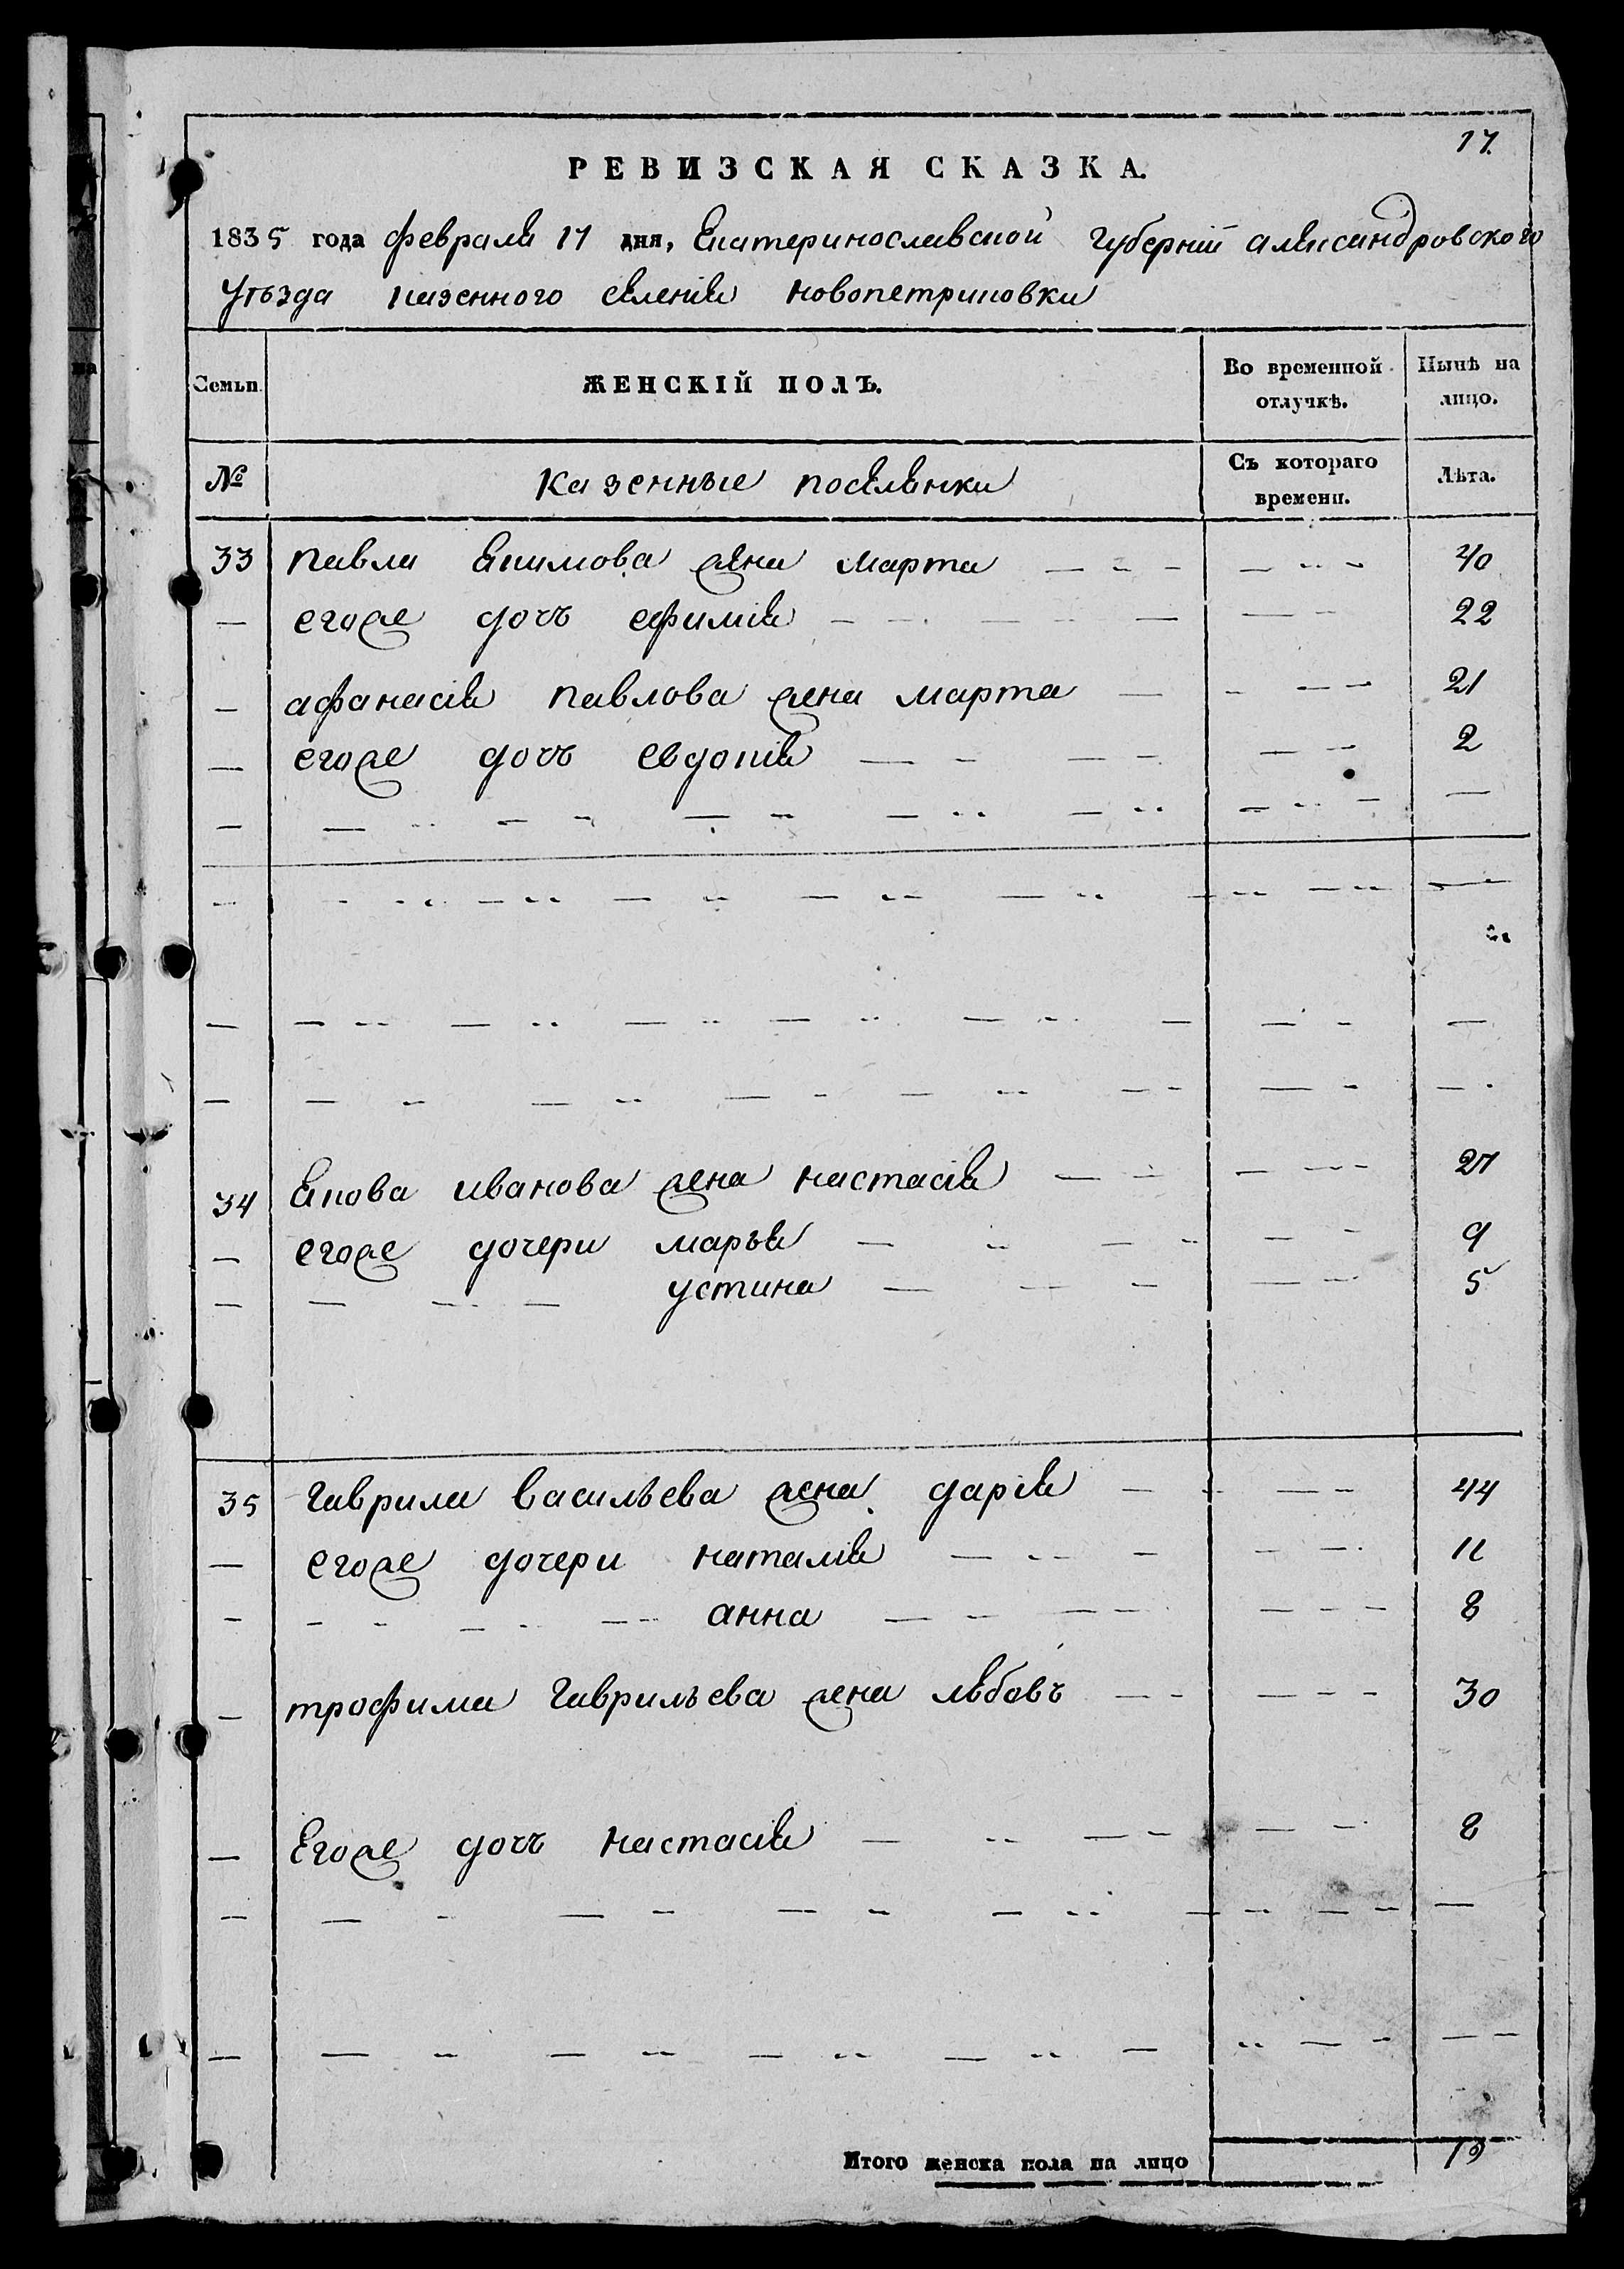 17.
РЕВИЗСКАЯ СКАЗКА.
1835 года февраля 17 дня, Екатеринославской Губерніи александровского
Уѣзда казенного селенія новопетриковки
Семьи. ЖЕНСКІЙ ПОЛЪ. Во временной отлучкѣ. Нынѣ на лицо.
№ Казенные поселянки Съ котораго времени. Лѣта.
33 павла Екимова жена марта 40
егоже дочь ефимія 22
афанасія павлова жена марта 21
егоже дочь евдокія 2
34 Якова иванова жена настасія 27
егоже дочери марья 9
устина 5
35 Гаврила васильева жена дарія 44
егоже дочери наталія 11
анна 8
трофима Гаврильева жена любовъ 30
Егоже дочь настасія 8
Итого женска пола на лицо